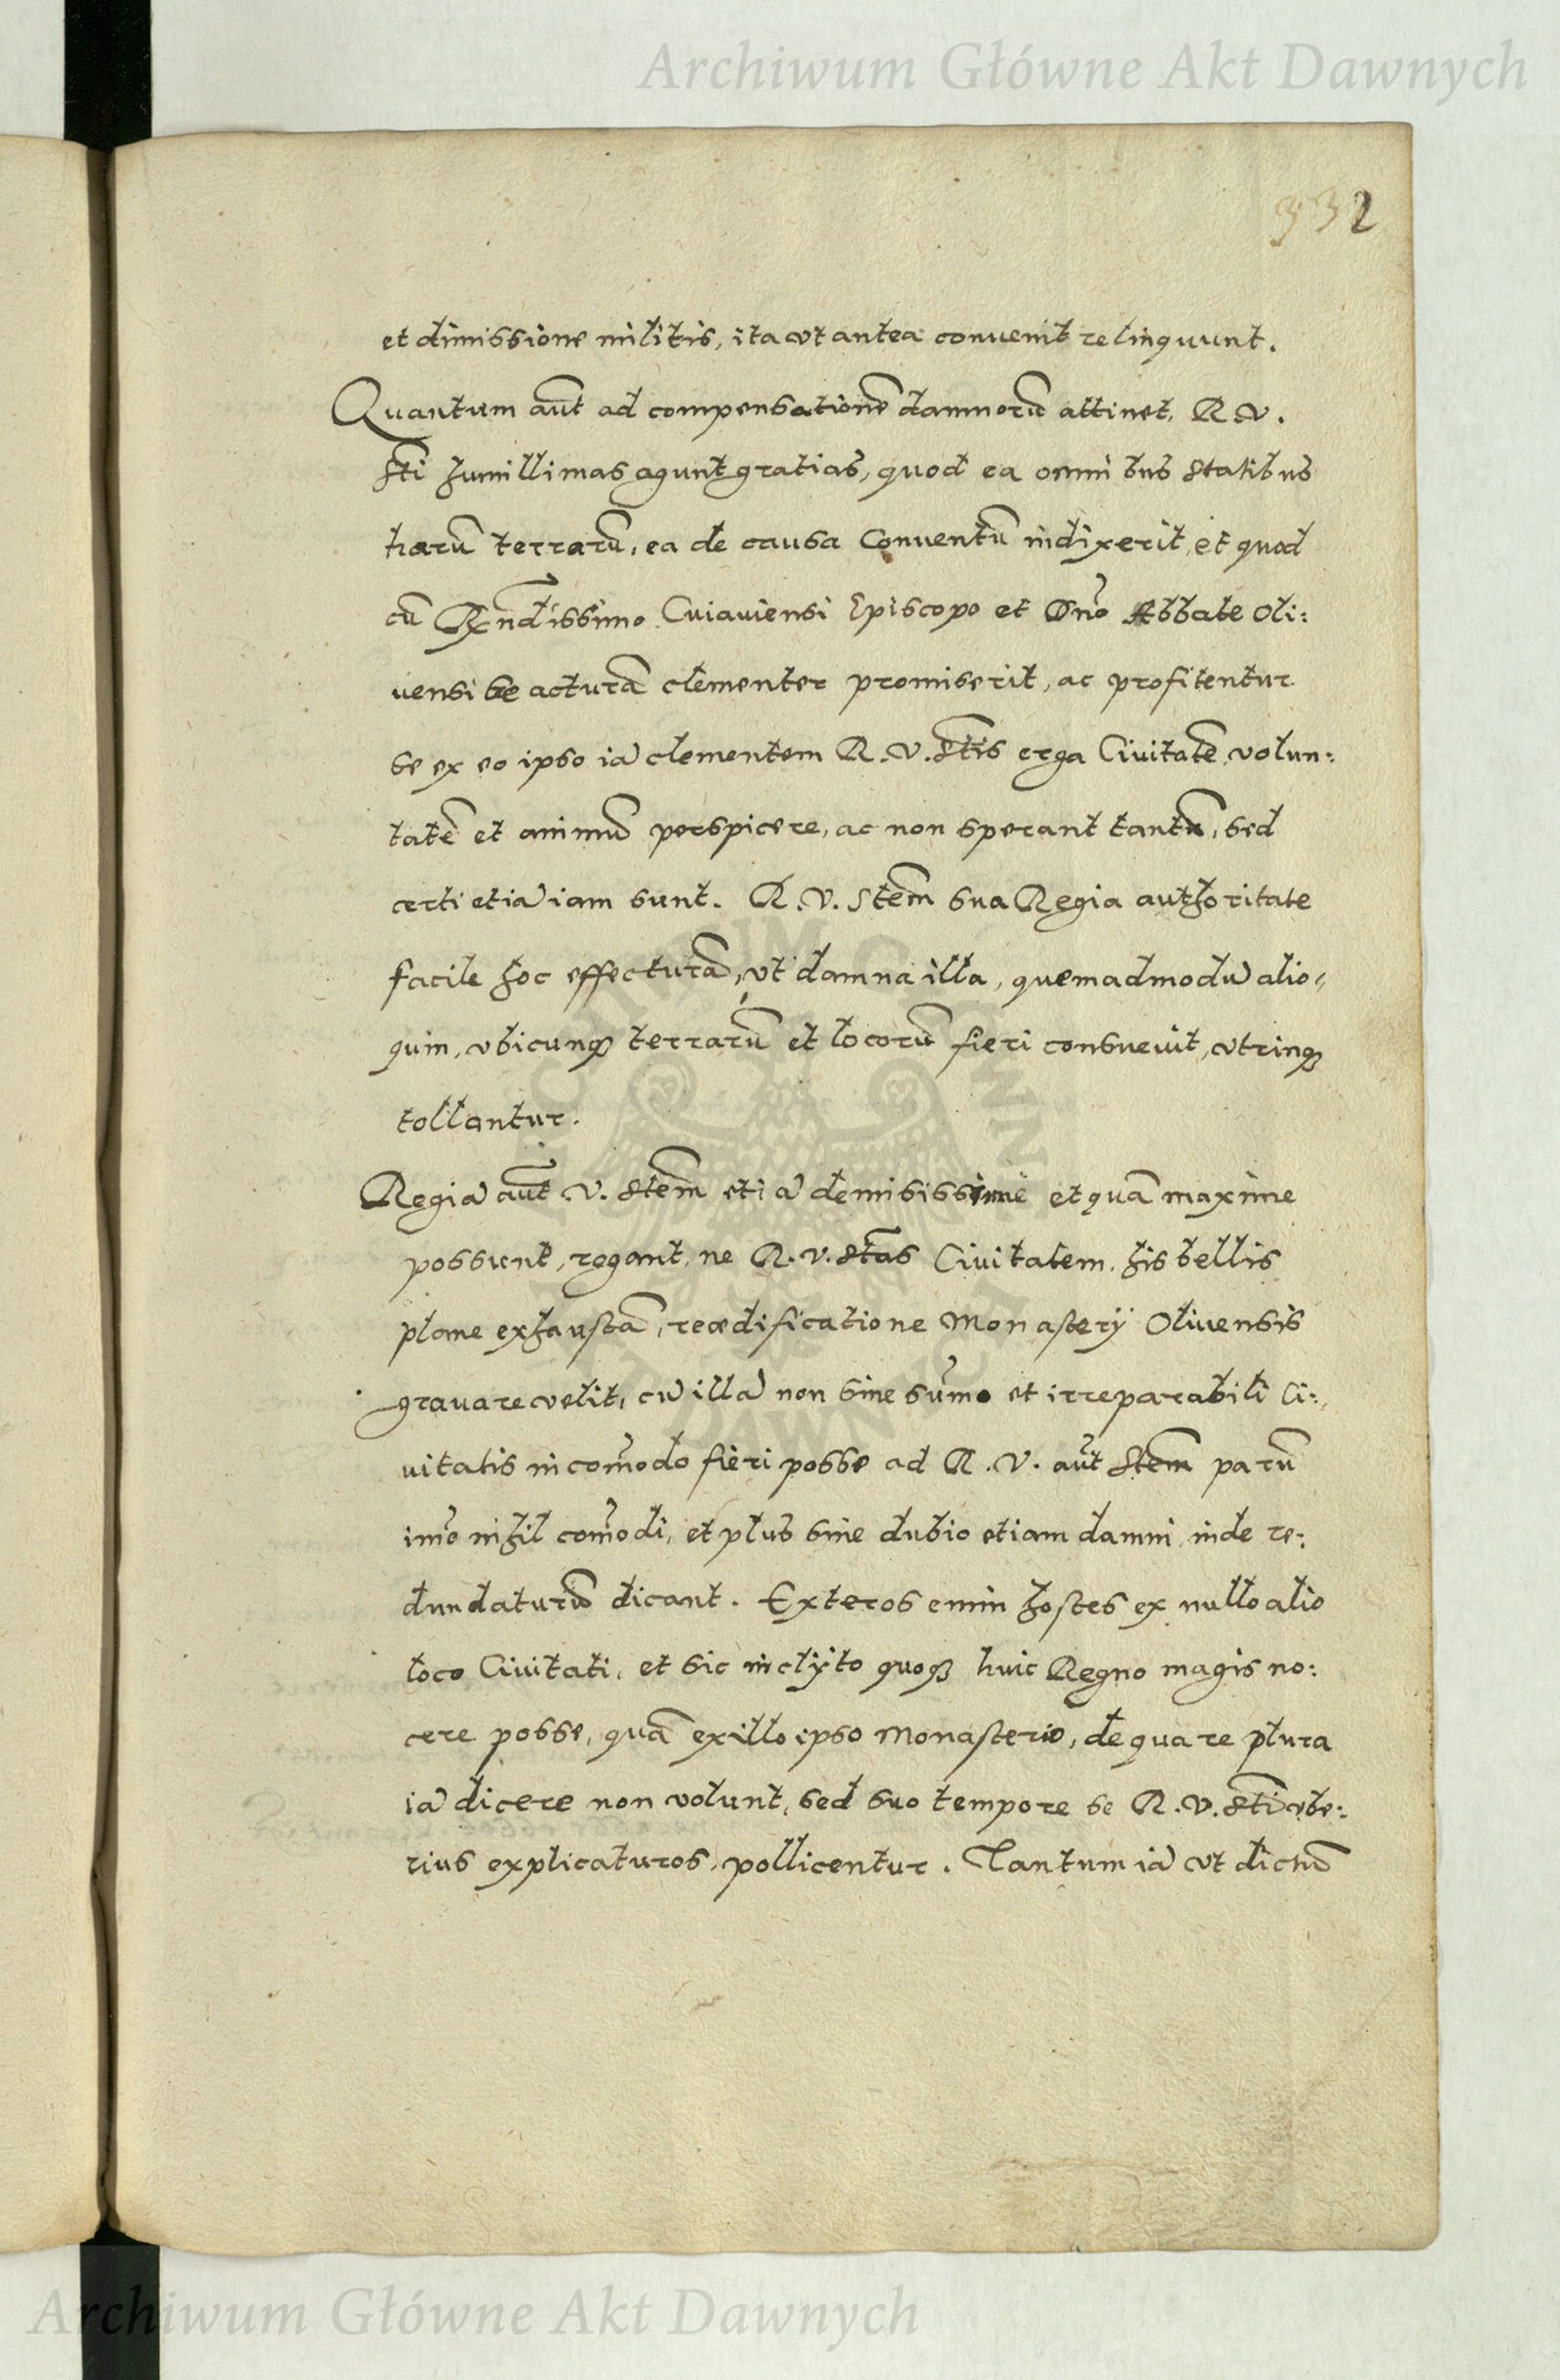 Archiwum Główne Akt Dawnych
332
et dimissione militis, ita vt antea conuenit relinquunt.
Quantum aũt ad compensationẽ damnorũ attinet, R. V.
Sti humillimas agunt gratias, quod ea omnibus statibus
harũ terrarũ, ea de causa Conventũ indixerit, et quod
cũ Rx̃ndissimo Cuiauiensi Episcopo et Dño Abbate Oli:
uensi se acturã clementer promiserit, ac profitentur
se ex eo ipso iã clementem R. V. Stis erga Ciuitatẽ volun:
tatẽ et animũ perspicere, ac non sperant tantũ, sed
certi etiã iam sunt. R. V. Stem sua Regia authoritate
facile hoc effecturã, vt damna illa, quemadmodũ alio-
quin, vbicunq₃ terrarũ et locorũ fieri consueuit, vtrinq₃
tollantur.
Regiã aũt V. Stem etiã demississimè et quã maxime
possunt, rogant, ne R. V. Stas Ciuitatem, his bellis
plane exhaustã, reædificatione Monasterÿ Oliuensis
grauare velit, cũ illã non sine sum̃o et irreparabili Ci:
uitatis incom̃odo fieri posse ad R. V. aũt Stem parũ
im̃o nihil com̃odi, et plus sine dubio etiam damni, inde re:
dundaturũ dicant. Exteros enim hostes ex nullo alio
loco Ciuitati, et sic inclÿto quoq₃ huic Regno magis no:
cere posse, quã ex illo ipso Monasterio, de qua re plura
iã dicere non volunt, sed suo tempore se R. V. Sti vbe:
rius explicaturos, pollicentur. Tantum iã vt dictũ
Archiwum Główne Akt Dawnych